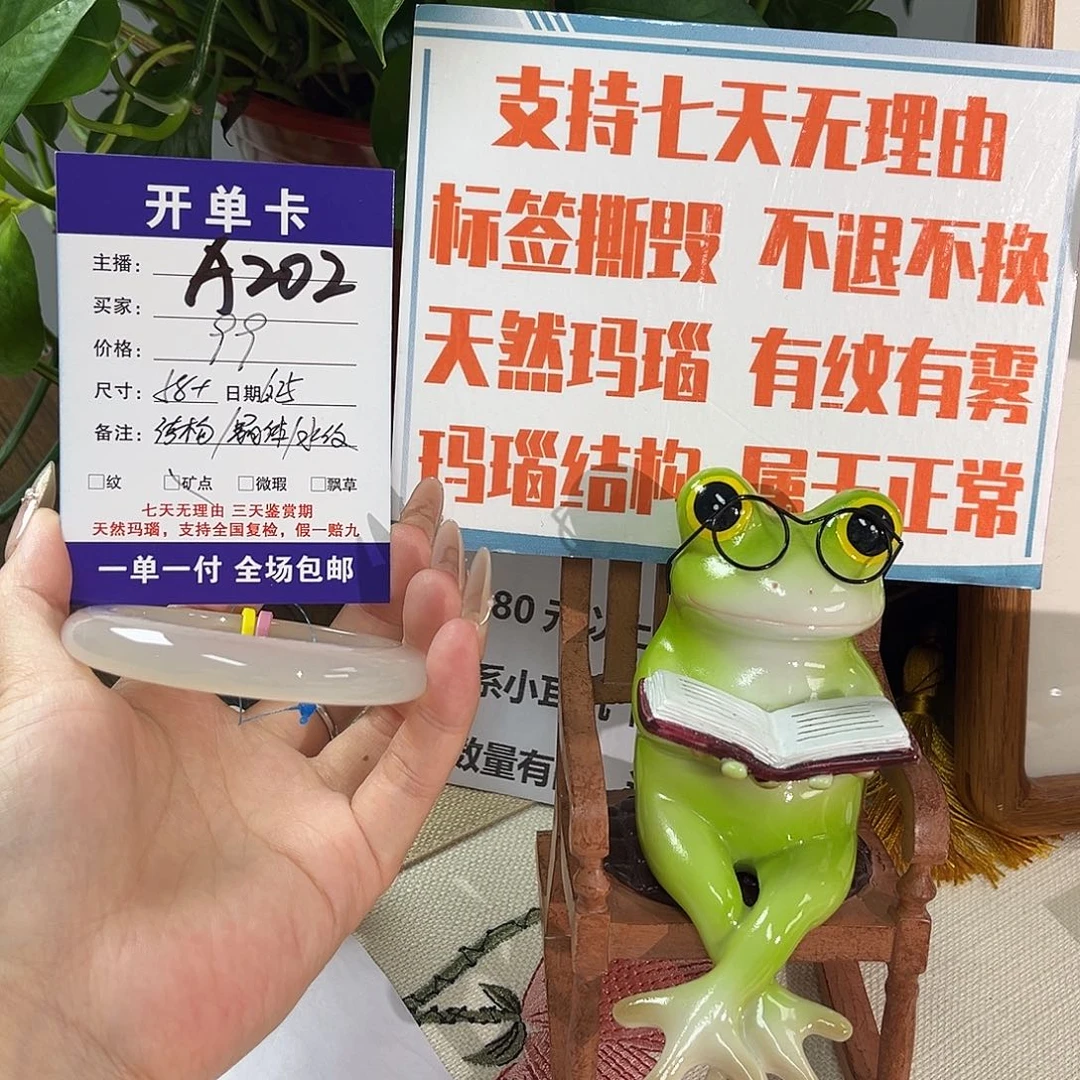 开单卡
主播: A202
买家:
价格: 99
尺寸: 58+ 日期
备注: 结构/
纹 矿点 微瑕 飘草
七天无理由 三天鉴赏期
天然玛瑙，支持全国复检，假一赔九
一单一付 全场包邮
支持七天无理由
标签撕毁 不退不换
天然玛瑙 有纹有雾
玛瑙结构 属于正常
80元以上
系小耳
数量有